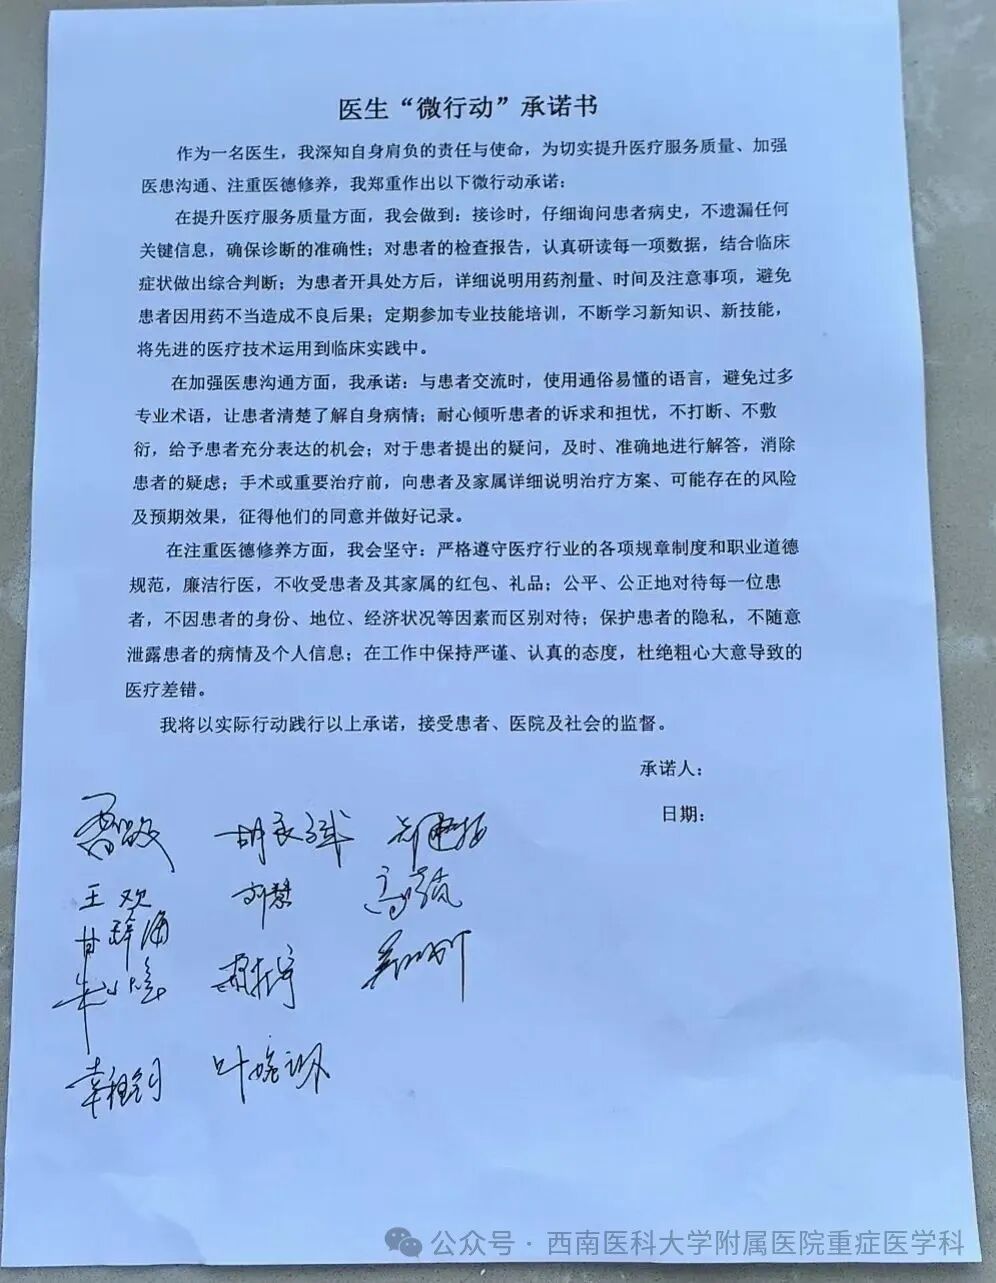 医生“微行动”承诺书
作为一名医生，我深知自身肩负的责任与使命，为切实提升医疗服务质量、加强
医患沟通、注重医德修养，我郑重作出以下微行动承诺：
在提升医疗服务质量方面，我会做到：接诊时，仔细询问患者病史，不遗漏任何
关键信息，确保诊断的准确性；对患者的检查报告，认真研读每一项数据，结合临床
症状做出综合判断；为患者开具处方后，详细说明用药剂量、时间及注意事项，避免
患者因用药不当造成不良后果；定期参加专业技能培训，不断学习新知识、新技能，
将先进的医疗技术运用到临床实践中。
在加强医患沟通方面，我承诺：与患者交流时，使用通俗易懂的语言，避免过多
专业术语，让患者清楚了解自身病情；耐心倾听患者的诉求和担忧，不打断、不敷
衍，给予患者充分表达的机会；对于患者提出的疑问，及时、准确地进行解答，消除
患者的疑虑；手术或重要治疗前，向患者及家属详细说明治疗方案、可能存在的风险
及预期效果，征得他们的同意并做好记录。
在注重医德修养方面，我会坚守：严格遵守医疗行业的各项规章制度和职业道德
规范，廉洁行医，不收受患者及其家属的红包、礼品；公平、公正地对待每一位患
者，不因患者的身份、地位、经济状况等因素而区别对待；保护患者的隐私，不随意
泄露患者的病情及个人信息；在工作中保持严谨、认真的态度，杜绝粗心大意导致的
医疗差错。
我将以实际行动践行以上承诺，接受患者、医院及社会的监督。
承诺人：
日期：
王欢 刘慧
公众号·西南医科大学附属医院重症医学科